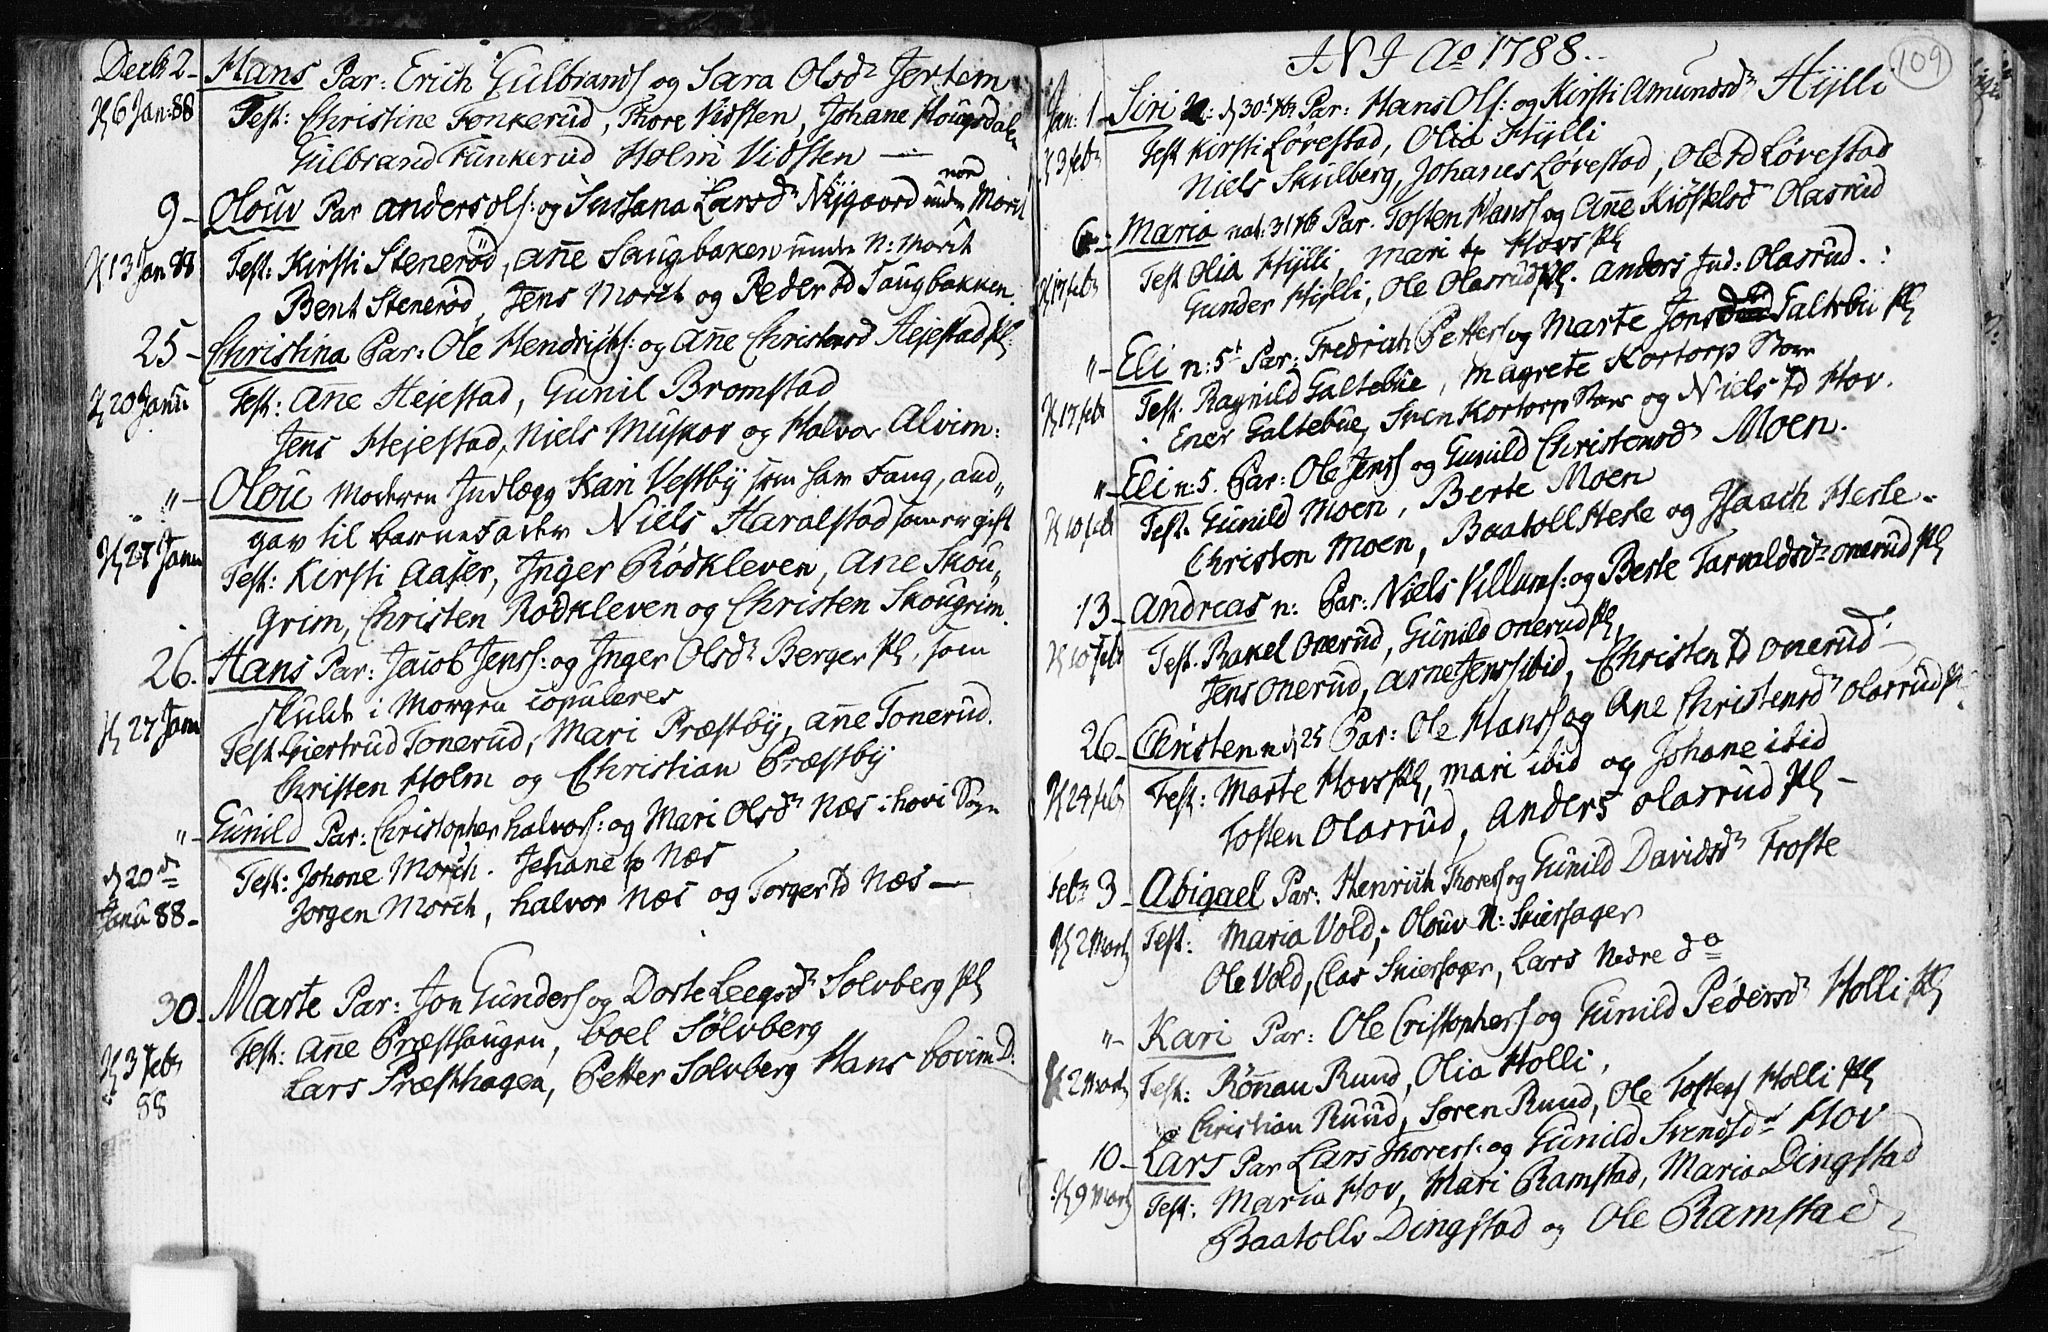 Decb 2 - Hans Par: Erich Gulbrands og Sara Olsdr Jertem
6 Jan: 88 Test: Christine Fonkerud, Thore Vidsten, Johane Hougsdalen
Gulbrand Funkerud Holm Vidsten —
9 - Olouv Par Anders Ols: og Susana Larsdr Nÿgaard unde nor Morch
13 Jan 88 Test: Kirsti Stenerød, Anne Saugbaken unde N: Morch
Bent Stenerød, Jens Morch og Peder td Saugbakken.
25 - Christina Par: Ole Hendrichs: og Anne Christensd Hejestad pl:
20 Janu Test: Ane Hejestad, Gunil Bromstad
Jens Hejestad, Niels Muskov og Halvor Alvim:
" - Olou Moderen Indlægg Kari Vestbÿ som har Faug, aud,,
gav til barnefader Niels Haralstad som er gift
27 Janu Test: Kirsti Aaser, Inger Rødkleven, Ane Skou,,
grim, Christen Rodkleven og Christen Skougrim.
26. Hans Par: Jacob Jens: og Inger Olsdr Berger pl, som
skulde i Morgen copuleres
27 Janu Test Giertrud Tonerud, Mari Præstbÿ, Anne Tonerud.
Christen Holm og Christian Præstbÿ
" - Gunild Par: Christopher Halvors: og Mari Olsdr Næs i hovi Sogn
20de Janu 88 - Test: Johane Morch. Jehane tp Næs
Jorgen Morch, Halvor Næs og Torger td Næs —
30 - Marte Par: Jon Gunders og Dorte Leegsdr Solvberg pl
3 Feb 88 Test: Anne Præsthaugen, Boel Sølvberg
Lars Præsthagen, Petter Solvberg Hans bovim D:
109
I N J Ao 1788.
Jan: 1 - Siri n: d 30t Xbr Par: Hans Ols: og Kirsti Amundsdr Hÿlli
3 Febr Test Kirsti Løvestad, Olia Hÿlli
Niels Skulberg, Johanes Løvestad, Ole td Løvestad
6 - Maria nat: 31 Xbr Par. Tosten Hans og Anne Kiøstelsd Olasrud
17 Febr Test Olia Hÿlli, Mari tp Hovs pl
Gunder Hÿlli, Ole Olasrud pl. Anders Ind: Olasrud.
" - Eli n: 5t Par: Fredrich Petters og Marte Jonsd Galtebu pl
17 Febr Test. Ragnild Galtebue, Magrete Kortorp Stow
Ener Galtebue, Sven Kortorp Stow og Niels td Hov.
" - Eli n: 5. Par: Ole Jens og Gunild Christensdr Moen.
10 Febr Test: Gunild Moen, Berte Moen
Christen Moen, Baatoll Herle og Isaach Herle -
13 - Andreas n: Par: Niels Villums: og Berte Tarvaldsdr Onerud pl
10 Febr Test. Rakel Onerud, Gunild Onerud pl,
Jens Onerud, Arne Jens ibid, Christen td Onerud
26 - Christen n d 25 Par: Ole Hans og Ane Christensdr Olasrud pl
24 Febr Test: Marte Hovs pl, Mari ibid og Johane ibid
Tosten Olasrud, Anders Olasrud pl -
Febr 3 - Abigael Par: Henrich Thores og Gunild Davidsdr Froste
2 Marti Test: Maria Vold, Olouv N: Skiersager
Ole Vold, Clas Skiersager, Lars Nedre do
" - Kari Par: Ole Cristophers og Gunild Pedersdr Holli pl
2 Marti Test: Rønnau Ruud, Olia Holli,
Christian Ruud, Soren Ruud, Ole Tostens Holli pl
10 - Lars Par Lars Thores: og Gunild Svendsdr Hov
9 Marti Test: Maria Hov, Mari Ramstad, Maria Dingstad
Baatolv Dingstad og Ole Ramstad